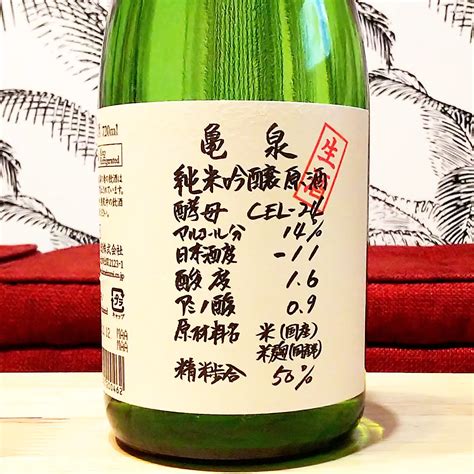 亀泉
純米吟醸原酒
生酒
酵母 CEL-24
アルコール分 14%
日本酒度 -11
酸度 1.6
アミノ酸 0.9
原材料名 米(国産)
米麹(国産米)
精米歩合 50%
720ml